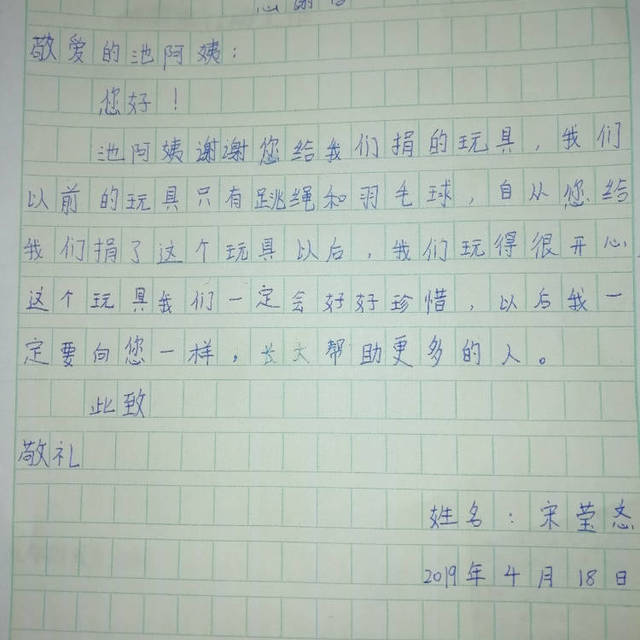 感谢信
敬爱的池阿姨：
您好！
池阿姨谢谢您给我们捐的玩具，我们
以前的玩具只有跳绳和羽毛球，自从您给
我们捐了这个玩具以后，我们玩得很开心，
这个玩具我们一定会好好珍惜，以后我一
定要向您一样，长大帮助更多的人。
此致
敬礼
姓名：宋莹
2019年4月18日